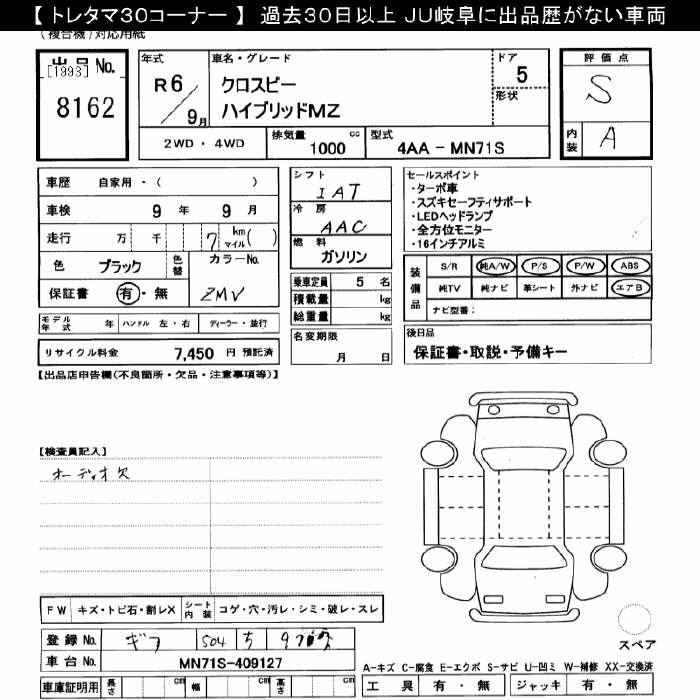 【 トレタマ30コーナー 】 過去30日以上 JU岐阜に出品歴がない車両
(複合機)対応用紙
出品 No.
[1993]
8162
年式
R6/9月
車名・グレード
クロスビー
ハイブリッドMZ
ドア
5
形状
評価点
S
内装
A
2WD ・ 4WD
排気量 1000 cc
型式 4AA - MN71S
車歴 自家用 ・ ( )
車検 9 年 9 月
走行 万 千 7 km マイル ( )
色 ブラック 色替
カラーNo.
ZMV
保証書 有 ・ 無
シフト
IAT
冷房
AAC
燃料
ガソリン
乗車定員 5 名
積載量 kg
総重量 kg
名変期限
月 日
セールスポイント
・ターボ車
・スズキセーフティサポート
・LEDヘッドランプ
・全方位モニター
・16インチアルミ
装備品
S/R 純A/W P/S P/W ABS
純TV 純ナビ 革シート 外ナビ エアB
ナビ型番:
モデル年式 年 ハンドル 左・右 ディーラー・並行
リサイクル料金 7,450 円 預託済
後日品
保証書・取説・予備キー
【出品店申告欄(不良箇所・欠品・注意事項等)】
【検査員記入】
オーディオ欠
FW キズ・トビ石・割レX シート内装 コゲ・穴・汚レ・シミ・破レ・スレ
登録 No. ギフ 504 ち
車台 No. MN71S-409127
車庫証明用 長さ cm 幅 cm 高さ cm
スペア
A-キズ C-腐食 E-エクボ S-サビ U-凹ミ W-補修 XX-交換済
工具 有 ・ 無 ジャッキ 有 ・ 無